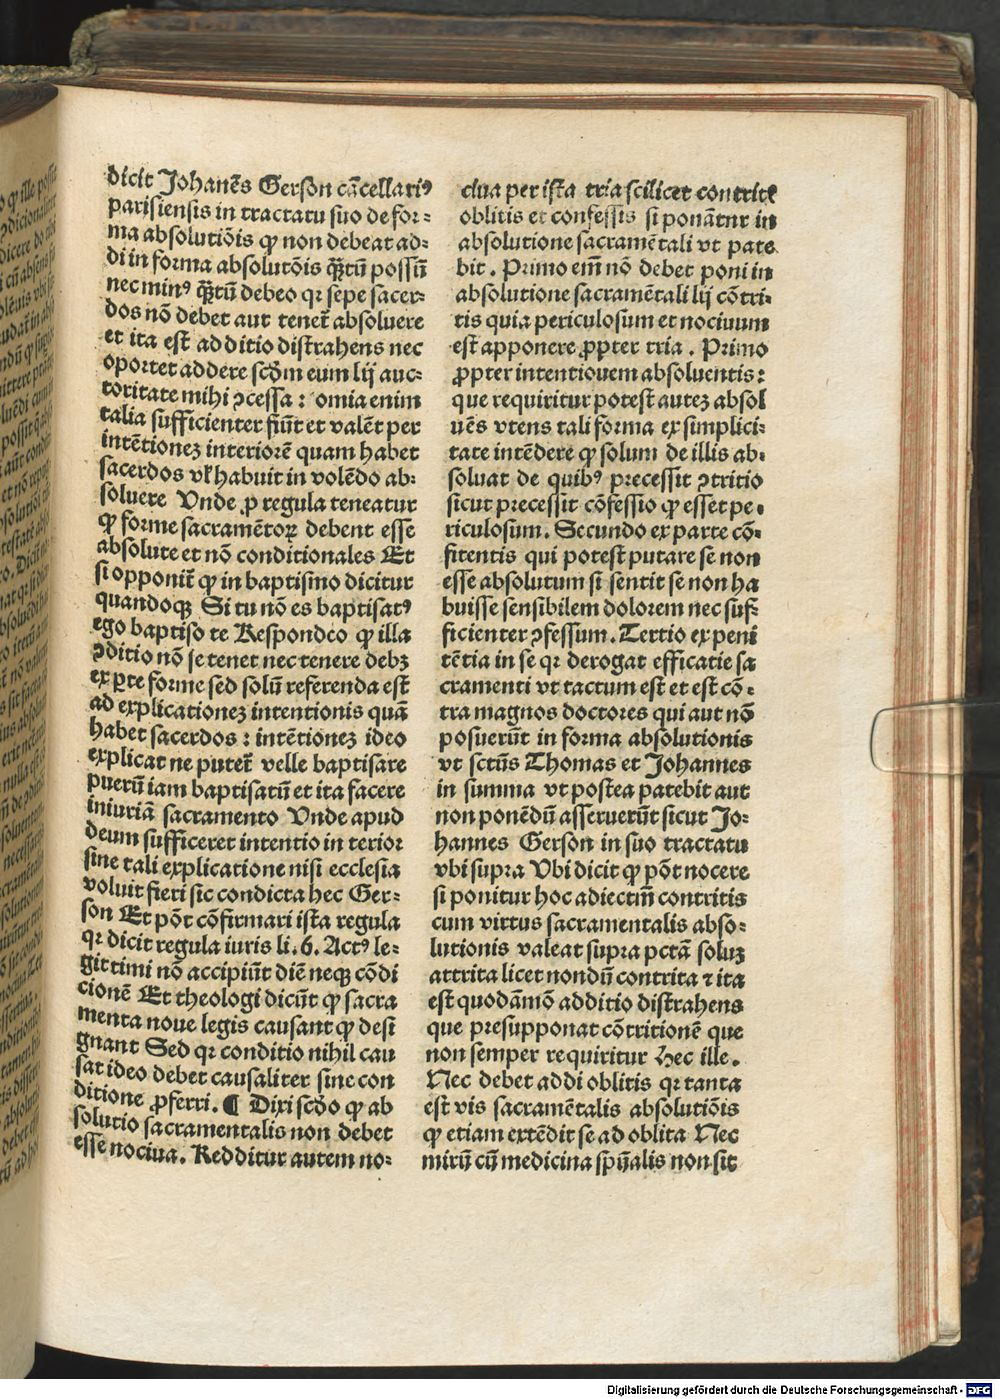 dicit Johanēs Gerson cācellariꝰ
parisiensis in tractatu suo de for⸗
ma absolutiōis ꝙ non debeat ad⸗
di in forma absolutōis q̄ꝫtū possū
nec minꝰ q̄ꝫtū debeo qꝛ sepe sacer⸗
dos nō debet aut tenet̄ absoluere
et ita est additio distrahens nec
oportet addere scḋm eum lij auc⸗
toritate mihi ꝯcessa : omia enim
talia sufficienter fiūt et valēt per
intētionez interiorē quam habet
sacerdos vl̓ habuit in volēdo ab⸗
soluere Vnde ꝓ regula teneatur
ꝙ forme sacramētoꝝ debent esse
absolute et nō conditionales Et
si opponit̄ ꝙ in baptismo dicitur
quandoqꝫ Si tu nō es baptisatꝰ
ego baptiso te Respondeo ꝙ illa
ꝯditio nō se tenet nec tenere debꝫ
ex ꝑte forme sed solū referenda est
ad explicationez intentionis quā
habet sacerdos : intētionez ideo
explicat ne putet̄ velle baptisare
puerū iam baptisatū et ita facere
iniuriā sacramento Vnde apud
deum sufficeret intentio in terior
sine tali explicatione nisi ecclesia
voluit fieri sic condicta hec Ger⸗
son Et pōt cōfirmari ista regula
qꝛ dicit regula iuris li. 6. Actꝰ le⸗
gittimi nō accipiūt diē neqꝫ cōdi
cionē Et theologi dicūt ꝙ sacra
menta noue legis causant ꝙ desi
gnant Sed qꝛ conditio nihil cau
sat ideo debet causaliter sine con
ditione ꝓferri. ¶ Dixi scḋo ꝙ ab
solutio sacramentalis non debet
esse nociua. Redditur autem no⸗
ciua per ista tria scilicet contritꝭ
oblitis et confessis si ponātnr in
absolutione sacramētali vt pate
bit. Primo em̄ nō debet poni in
absolutione sacramētali lij cōtri⸗
tis quia periculosum et nociuum
est apponere ꝓpter tria. Primo
ꝓpter intentiouem absoluentis :
que requiritur potest autez absol
uēs vtens tali forma ex simplici⸗
tate intēdere ꝙ solum de illis ab⸗
soluat de quibꝰ precessit ꝯtritio
sicut precessit cōfessio ꝙ esset pe⸗
riculosum. Secundo ex parte cō⸗
fitentis qui potest putare se non
esse absolutum si sentit se non ha
buisse sensibilem dolorem nec suf⸗
ficienter ꝯfessum. Tertio ex peni
tētia in se qꝛ derogat efficatie sa
cramenti vt tactum est et est cō⸗
tra magnos doctores qui aut nō
posuerūt in forma absolutionis
vt sctūs Thomas et Johannes
in summa vt postea patebit aut
non ponēdū asseruerūt sicut Jo⸗
hannes Gerson in suo tractatu
vbi supra Vbi dicit ꝙ pōt nocere
si ponitur hoc adiectm̄ contritis
cum virtus sacramentalis abso⸗
lutionis valeat supra pctā soluꝫ
attrita licet nondū contrita ⁊ ita
est quodāmō additio distrahens
que presupponat cōtritionē que
non semper requiritur Hec ille.
Nec debet addi oblitis qꝛ tanta
est vis sacramētalis absolutiōis
ꝙ etiam extēdit se ad oblita Nec
mirū cū medicina sp̄ualis non sit
Digitalisierung gefördert durch die Deutsche Forschungsgemeinschaft - DFG